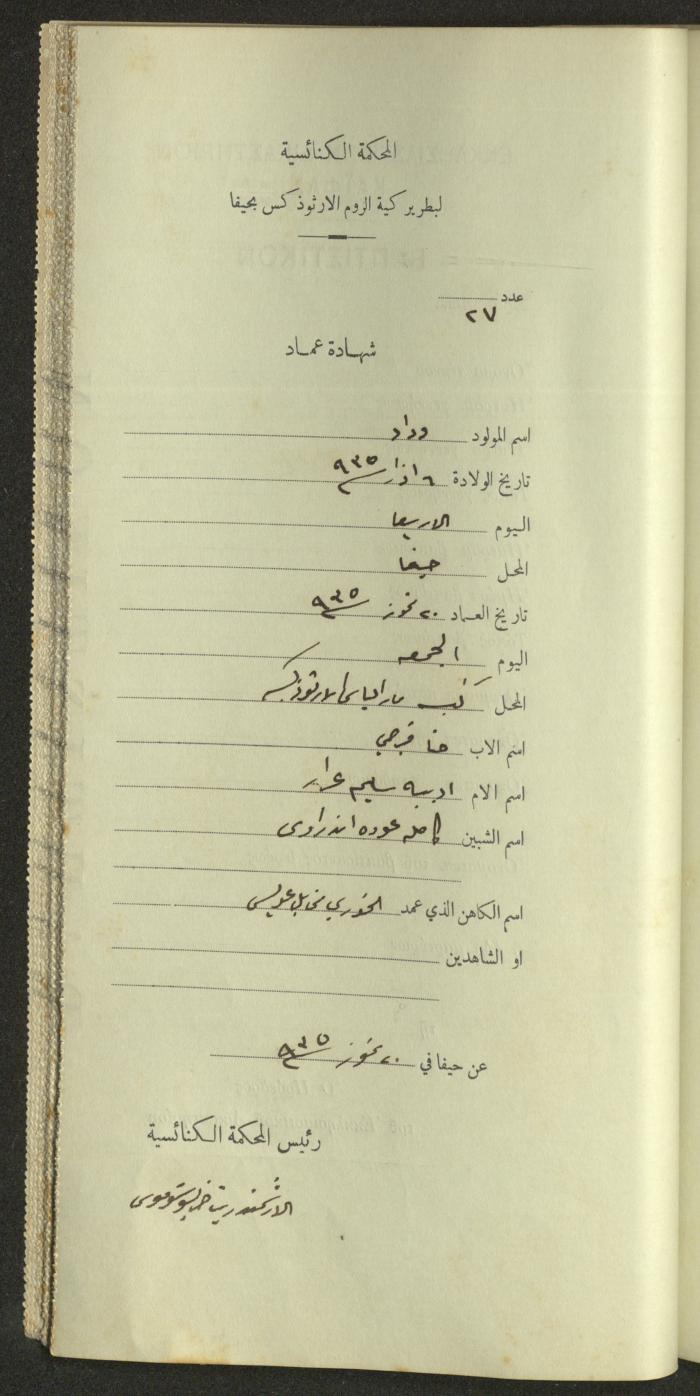 المحكمة الكنائسية
لبطريركية الروم الارثوذكس بحيفا
عدد ٢٧
شهادة عماد
اسم المولود وداد
تاريخ الولادة ٦ اذار ٩٣٥
اليوم الاربعا
المحل حيفا
تاريخ العماد ٢٠ تموز ٩٣٥
اليوم الجمعه
المحل كنيسه مار الياس الارثوذكسيه
اسم الاب حنا
اسم الام اديبه سليم
اسم الشبين كامله عوده اندراوس
اسم الكاهن الذي عمد الخوري
او الشاهدين
عن حيفا في ٢٠ تموز ٩٣٥
رئيس المحكمة الكنائسية
الارشمندريت